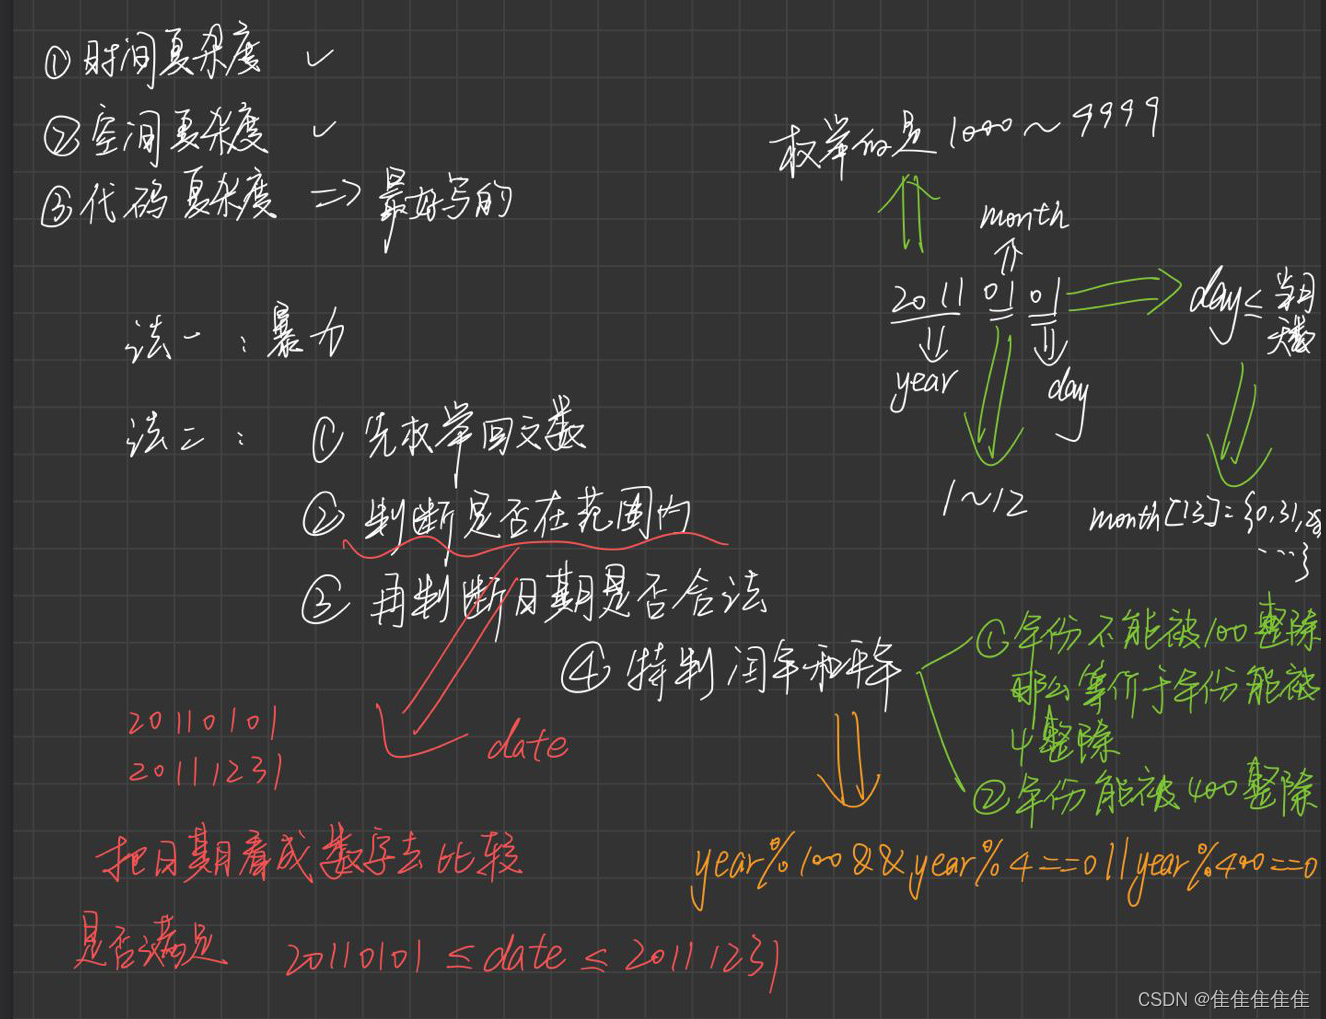 ①时间复杂度 ✓
②空间复杂度 ✓
③代码复杂度 => 最好写的
枚举的是1000~9999
month
2011 01 01
year
day
day≤当月
天数
1~12
month[13]={0,31,28
....}
法一：暴力
法二：①先枚举回文数
②判断是否在范围内
③再判断日期是否合法
④特判闰年和平年
①年份不能被100整除
那么等价于年份能被
4整除
②年份能被400整除
year%100&&year%4==0||year%400==0
20110101
20111231
date
把日期看成数字去比较
是否满足 20110101≤date≤20111231
CSDN @隹隹隹隹隹